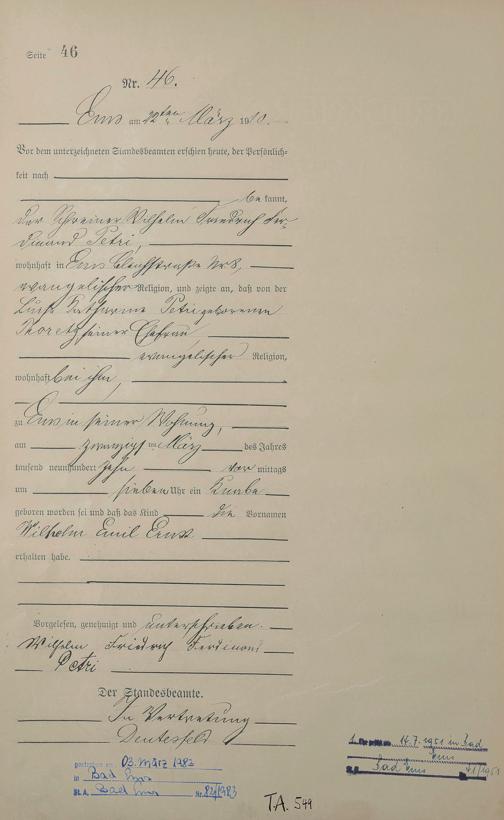 Seite 46
Nr. 46.
Ems am 22ten März 1910.
Vor dem unterzeichneten Standesbeamten erschien heute, der Persönlich-
keit nach
be kannt,
der Schreiner Wilhelm Friedrich Fer-
dinand Petri,
wohnhaft in Ems Bleichstraße Nr 8,
evangelischer Religion, und zeigte an, daß von der
Katharine Petri geborenen
seiner Ehefrau,
evangelischer Religion,
wohnhaft bei ihm,
zu Ems in seiner Wohnung,
am März des Jahres
tausend neunhundert zehn vor mittags
um sieben Uhr ein Knabe
geboren worden sei und daß das Kind die Vornamen
Wilhelm Emil Ernst
erhalten habe.
Vorgelesen, genehmigt und unterschrieben.
Wilhelm Friedrich Ferdinand
Petri
Der Standesbeamte.
In Vertretung
gestorben am 03. März 1983
in Bad Ems
St.A. Bad Ems Nr. 1983
14.7.1951 in Bad
Ems
Bad Ems
TA. 544